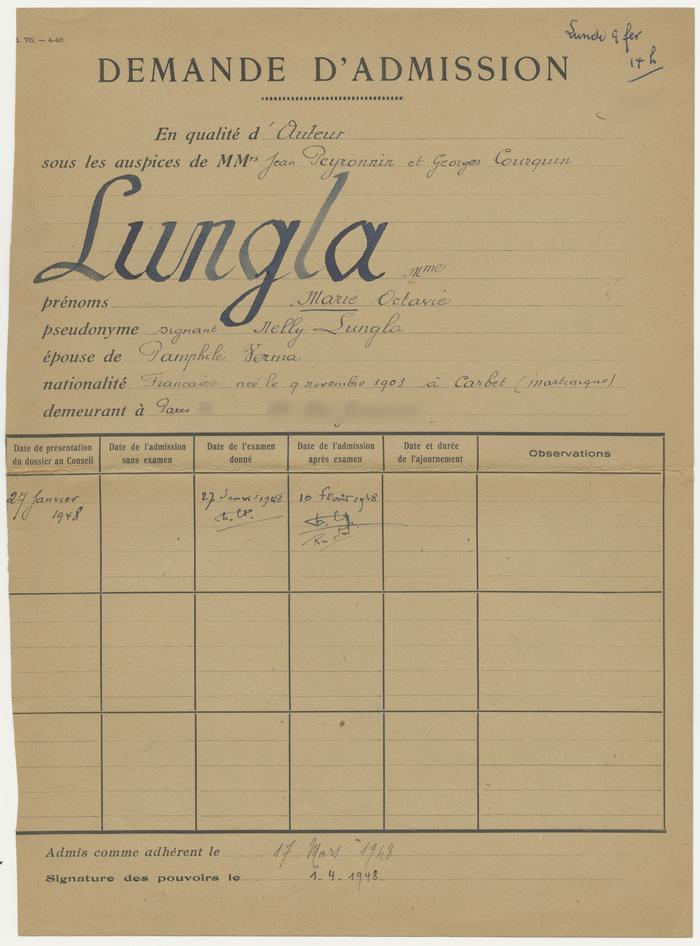 1. 76. — 4-46.
Lundi 9 fev
14 h
DEMANDE D'ADMISSION
En qualité d'Auteur
sous les auspices de MMrs Jean Peyronnin et Georges Courquin
Lungla Mme
prénoms Marie Octavie
pseudonyme signant Nelly Lungla
épouse de Pamphile Verma
nationalité Française née le 9 novembre 1903 à Carbet (Martinique)
demeurant à Paris
Date de présentation du dossier au Conseil
Date de l'admission sans examen
Date de l'examen donné
Date de l'admission après examen
Date et durée de l'ajournement
Observations
27 Janvier 1948
27 Janvier 1948
10 Février 1948
Admis comme adhérent le 17 Mars 1948
Signature des pouvoirs le 1.4.1948.